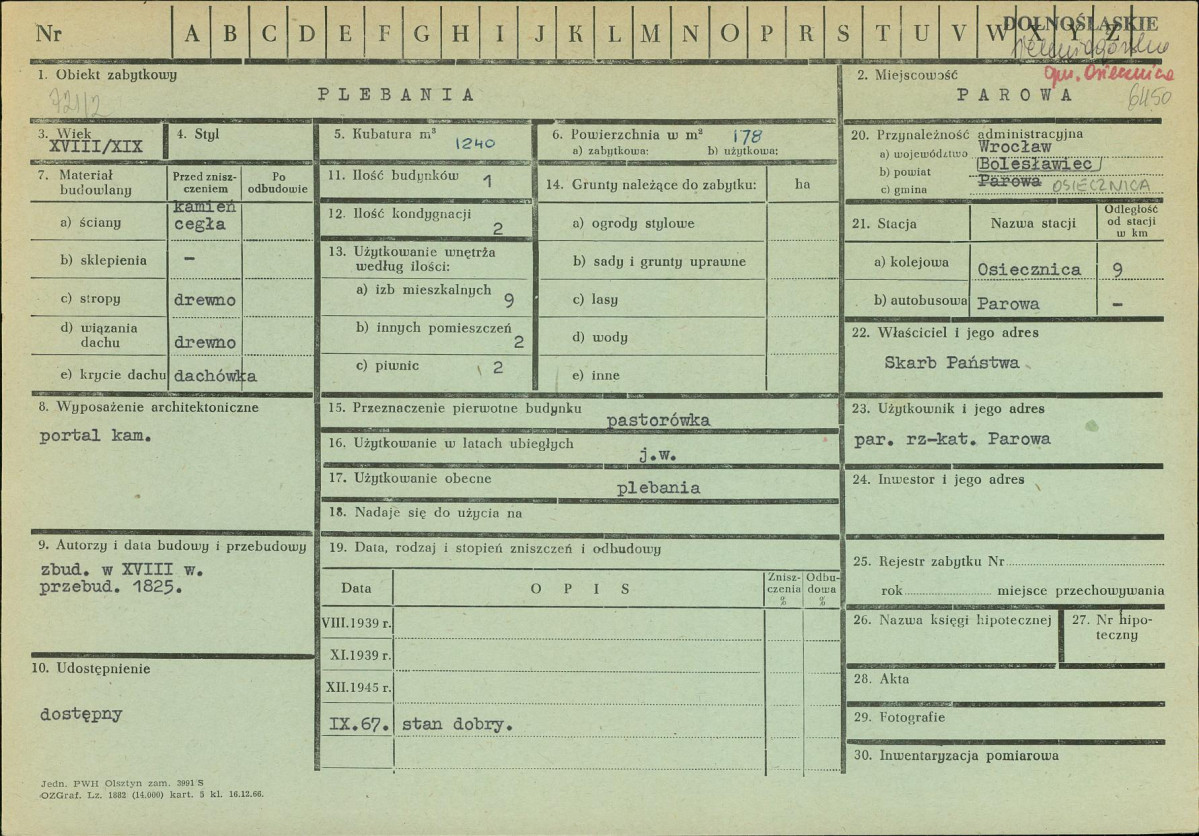 Nr A B C D E F G H I J K L M N O P R S T U V W X Y Z
DOLNOŚLĄSKIE
gm. Osiecznica
1. Obiekt zabytkowy
721/2
PLEBANIA
2. Miejscowość
PAROWA
6450
3. Wiek
XVIII/XIX
4. Styl
5. Kubatura m³
1240
6. Powierzchnia w m² 178
a) zabytkowa: b) użytkowa:
7. Materiał budowlany
Przed zniszczeniem
Po odbudowie
a) ściany kamień
cegła
b) sklepienia –
c) stropy drewno
d) wiązania
dachu drewno
e) krycie dachu dachówka
11. Ilość budynków 1
12. Ilość kondygnacji 2
13. Użytkowanie wnętrza
według ilości:
a) izb mieszkalnych 9
b) innych pomieszczeń 2
c) piwnic 2
14. Grunty należące do zabytku: ha
a) ogrody stylowe
b) sady i grunty uprawne
c) lasy
d) wody
e) inne
20. Przynależność administracyjna
a) województwo Wrocław
b) powiat Bolesławiec
c) gmina Parowa OSIECZNICA
21. Stacja Nazwa stacji Odległość
od stacji
w km
a) kolejowa Osiecznica 9
b) autobusowa Parowa –
22. Właściciel i jego adres
Skarb Państwa
8. Wyposażenie architektoniczne
portal kam.
15. Przeznaczenie pierwotne budynku
pastorówka
16. Użytkowanie w latach ubiegłych
j.w.
17. Użytkowanie obecne
plebania
18. Nadaje się do użycia na
23. Użytkownik i jego adres
par. rz-kat. Parowa
24. Inwestor i jego adres
9. Autorzy i data budowy i przebudowy
zbud. w XVIII w.
przebud. 1825.
10. Udostępnienie
dostępny
19. Data, rodzaj i stopień zniszczeń i odbudowy
Data OPIS Znisz-
czenia
% Odbu-
dowa
%
VIII.1939 r.
XI.1939 r.
XII.1945 r.
IX.67. stan dobry.
25. Rejestr zabytku Nr
rok miejsce przechowywania
26. Nazwa księgi hipotecznej
27. Nr hipo-
teczny
28. Akta
29. Fotografie
30. Inwentaryzacja pomiarowa
Jedn. PWH Olsztyn zam. 3991 S
OZGraf. Lz. 1882 (14.000) kart. 5 kl. 16.12.66.